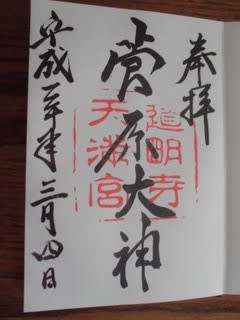 奉拝
菅原大神
道明寺
天満宮
平成二年三月四日